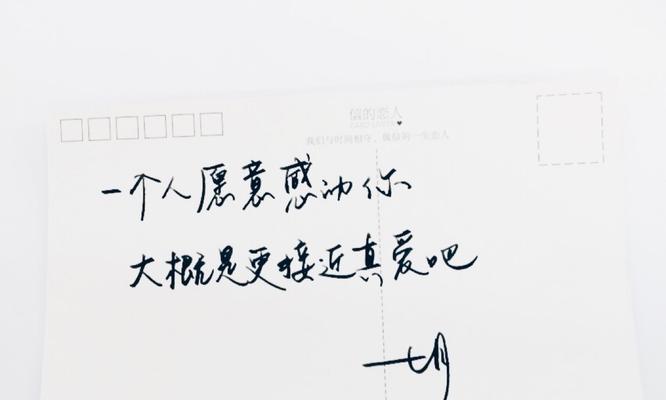 信的恋人
CARD LOVER
我们与时间相守，做信的一生恋人
一个人愿意感动你
大概是更接近真爱吧
一七月